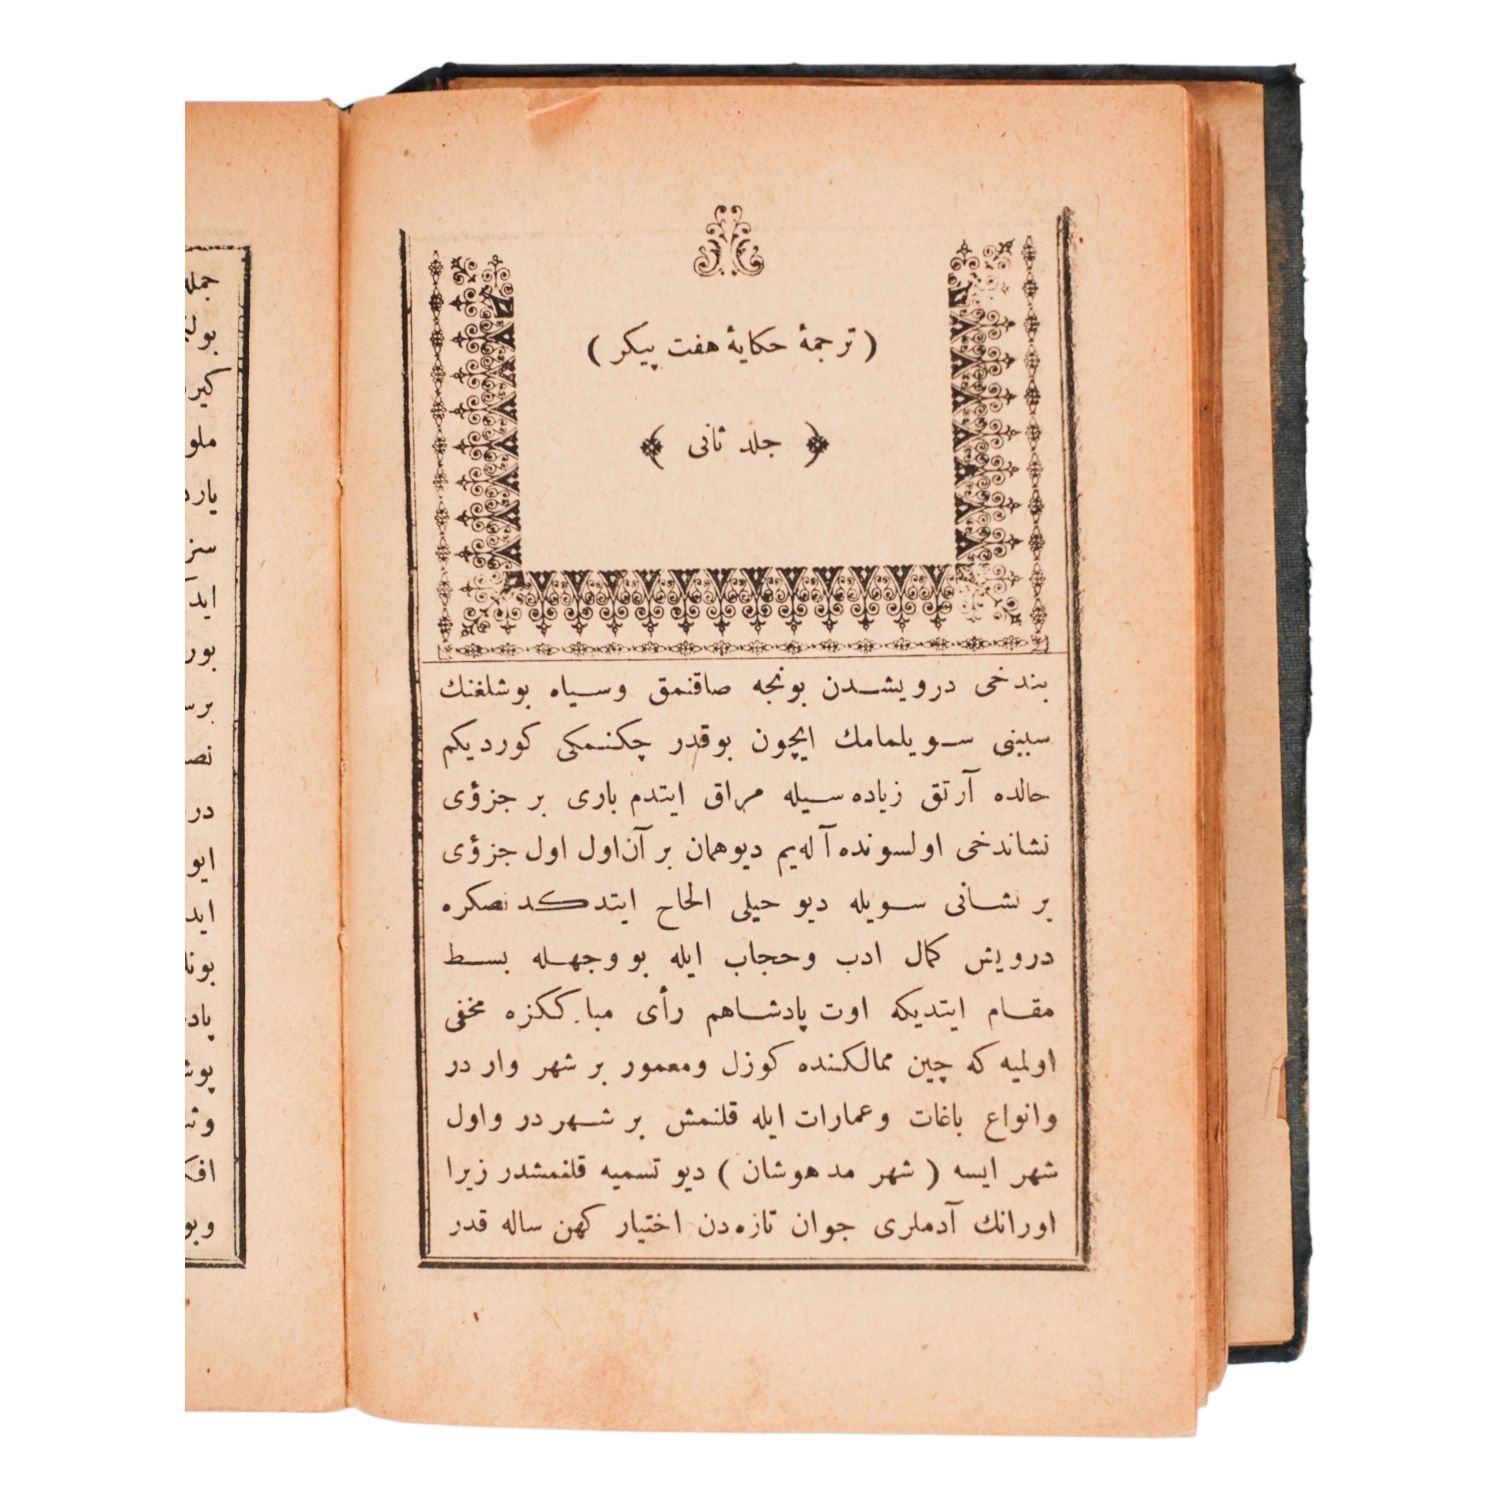 ( ترجمهٔ حكایهٔ هفت پیكر )
﴿ جلد ثانی ﴾
بندخی درویشدن بونجه صاقنمق وسیاه بوشلغنك
سببنی سویلمامك ایچون بوقدر چكنمكی كوردیكم
حالده آرتق زیاده سیله مراق ایتدم باری بر جزؤی
نشاندخی اولسونده آله‌یم دیوهمان بر آن‌اول اول جزؤی
بر نشانی سویله دیو حیلی الحاح ایتدكدنصكره
درویش كمال ادب وحجاب ایله بووجهله بسط
مقام ایتدیكه اوت پادشاهم رأی مبارككزه مخفی
اولمیه كه چین ممالكنده كوزل ومعمور بر شهر واردر
وانواع باغات وعمارات ایله قلنمش بر شهردر واول
شهر ایسه ( شهر مدهوشان ) دیو تسمیه قلنمشدر زیرا
اورانك آدملری جوان تازه‌دن اختیار كهن ساله قدر
جمله
كیر
ملو
یارد
سز
ایدـ
بور
برسـ
نصـ
در
ایو
ایدـ
بونـ
پادـ
پوشـ
افكـ
وبو